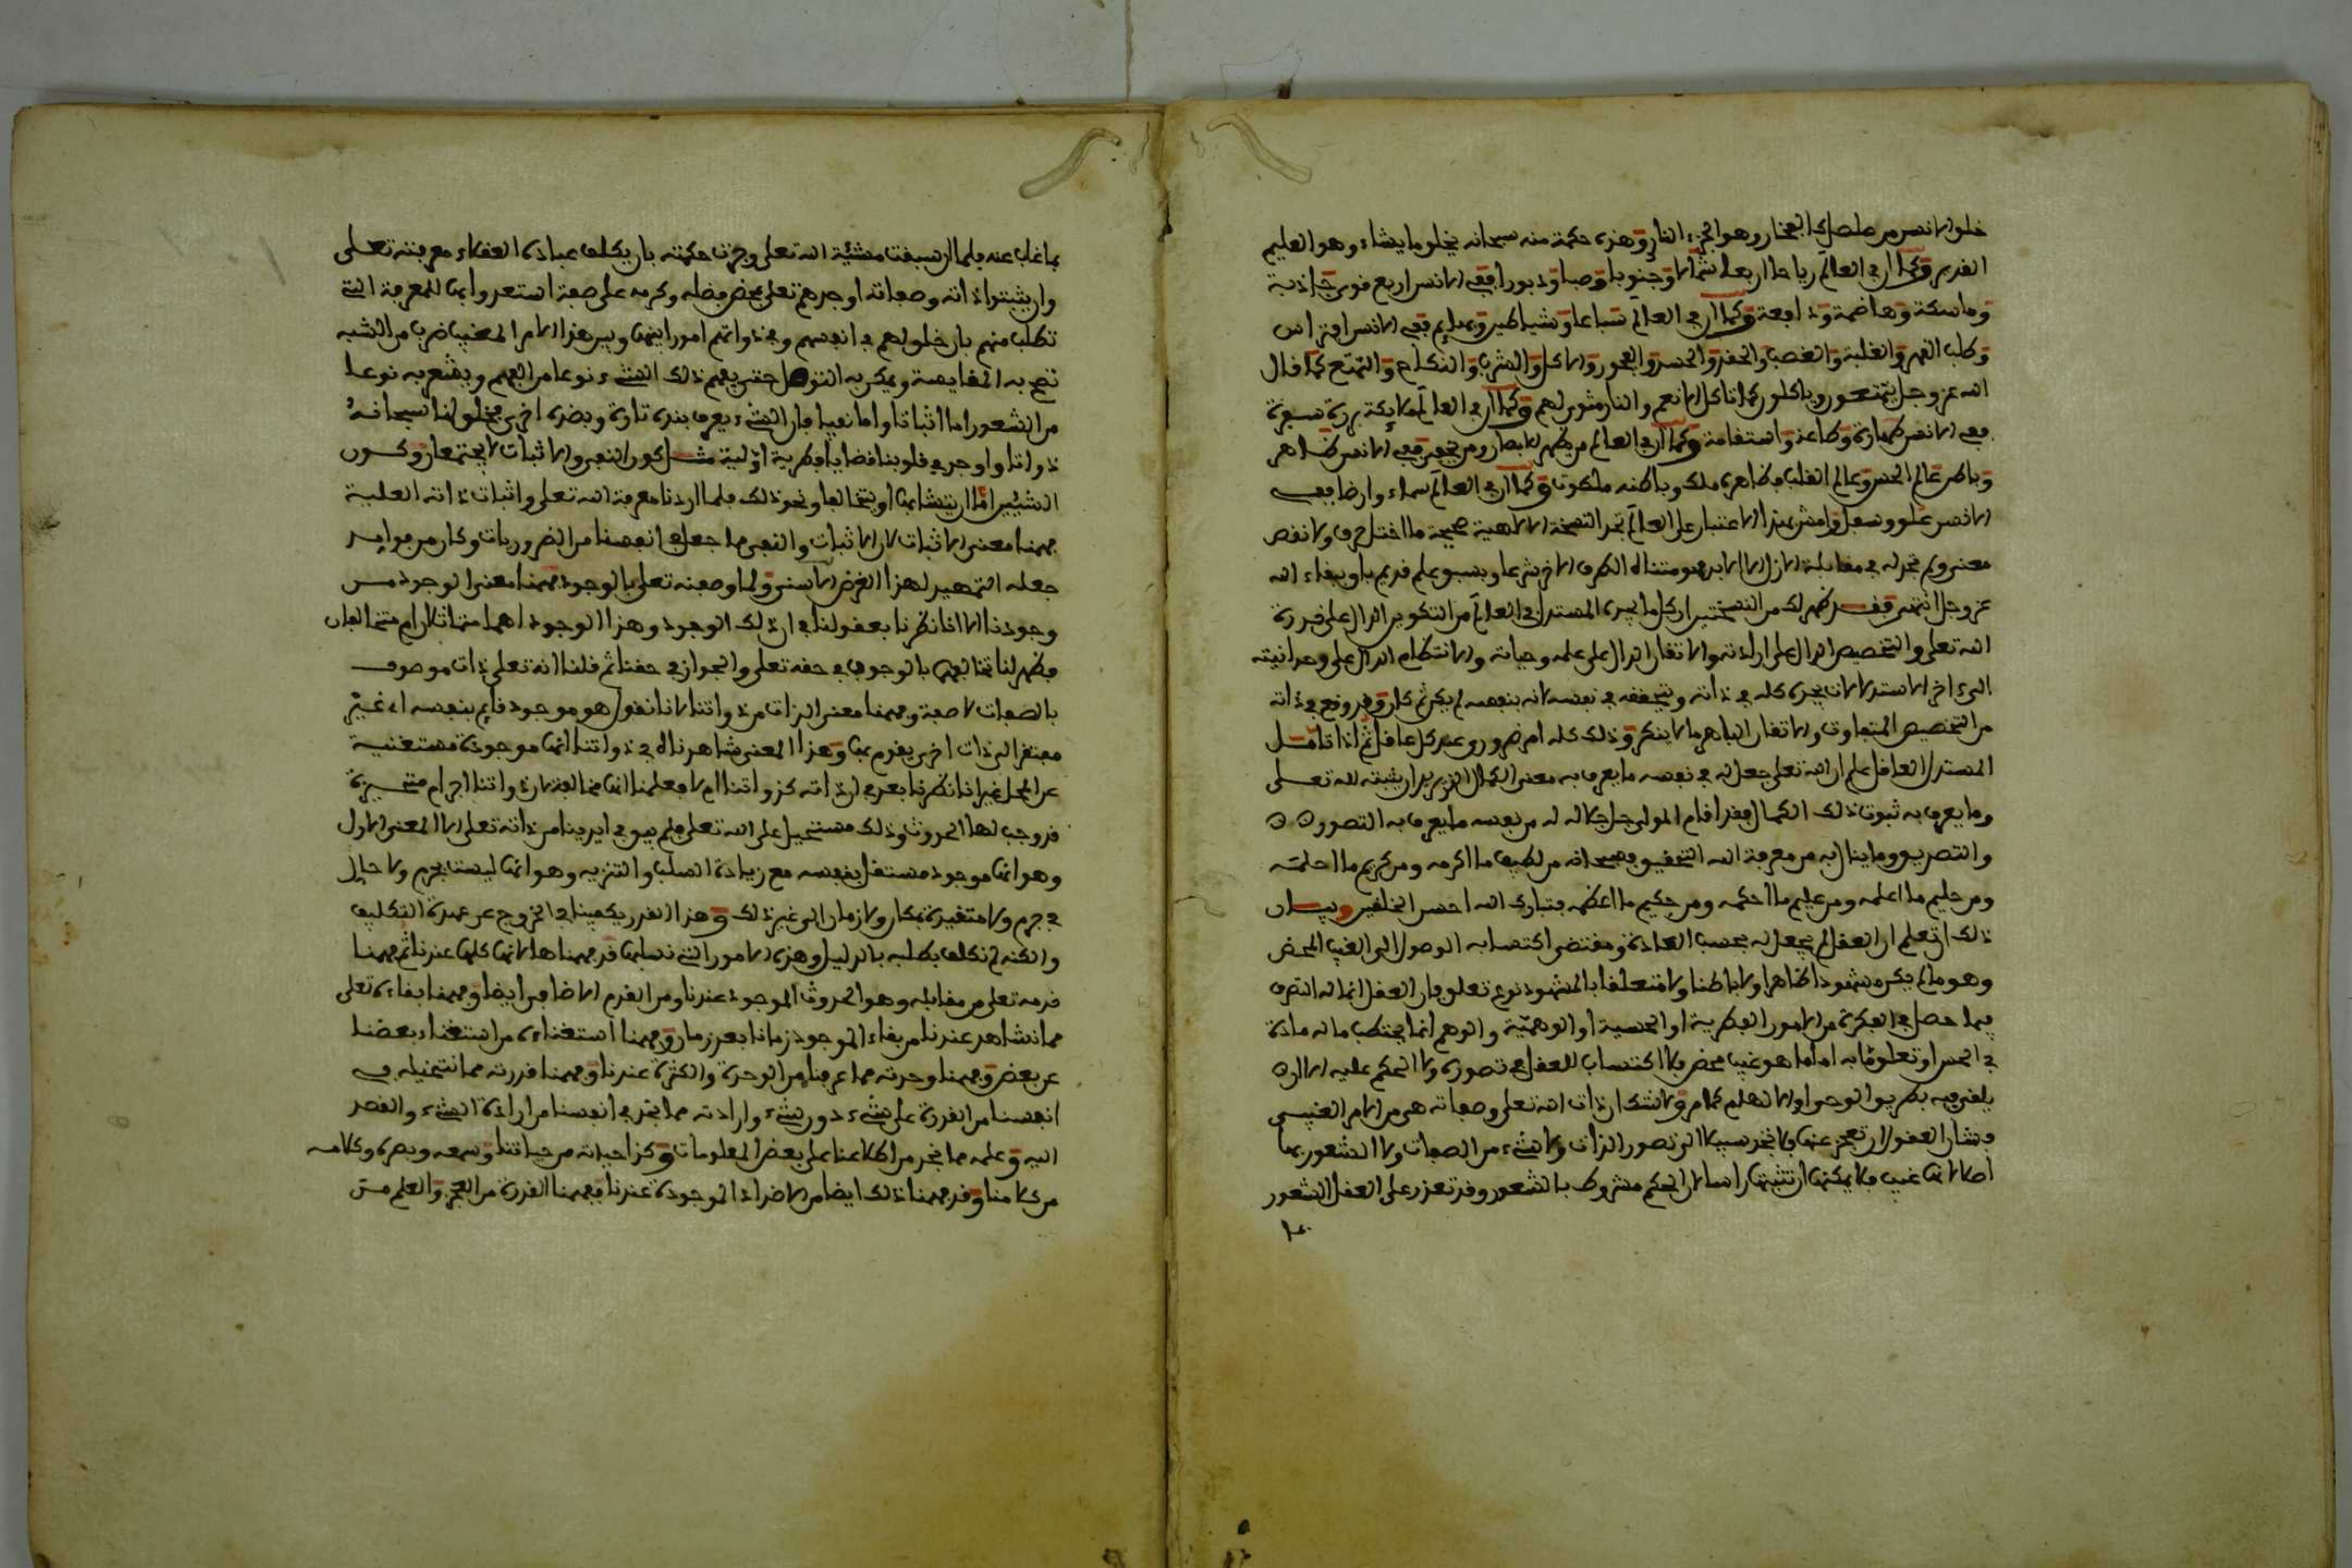 خلق الانسان من صلصال كالفخار وهو الجزء الناري وهذه حكمة منه سبحانه يخلق ما يشاء وهو العليم
القدير وكما ان في العالم رياحا اربعا شمالا وجنوبا وصبا ودبورا ففي الانسان اربع قوى جاذبة
وماسكة وهاضمة ودافعة وكما ان في العالم سباعا وشياطين وبهايم ففي الانسان افتراس
وطلب القهر والغلبة والغضب والحقد والحسد والفجور والاكل والشرب والنكاح والتمتع كما قال
الله عز وجل يتمتعون وياكلون كما تاكل الانعم والنار مثوى لهم وكما ان في العالم ملايكة بررة سفرة
ففي الانسان طهارة وطاعة واستقامة وكما ان في العالم من يظهر للابصار ومن يخفى ففي الانسان ظاهر
وباطن عالم الحس وعالم القلب فظاهره ملك وباطنه ملكوت وكما ان في العالم سماء وارضا ففي
الانسان علو وسفل وامش بهذا الاعتبار على العالم تجد النسخة الالاهية صحيحة ما اختل حرف ولا نقص
معنى ولم تجد له في مقابلة الازل الا الابد فهو متناه الطرف الاخر شرعا وبسبق علم قديم باق ببقاء الله
عز وجل انتهى فقد ظهر لك من النسختين ان كل ما يجده المستدل في العالم من التكوين الدال على قدرة
الله تعلى والتخصيص الدال على ارادته والاتقان الدال على علمه وحياته والانتظام الدال على وحدانيته
الى ءاخر الاستدلالات يجده كله في ذاته ويتحققه في نفسه لانه بنفسه لم يكن ثم كان وقد وقع في ذاته
من التخصيص المتفاوت والاتقان الباهر ما لا ينكر وذلك كله امر ضروري عند كل عاقل ثم اذا تامل
المستدل العاقل علم ان الله تعلى جعل له في نفسه ما يعرف به معنى الكمال الذي يريد ان يثبته لله تعلى
وما يعرف به ثبوت ذلك الكمال فقد اقام المولى جل جلاله له من نفسه ما يعرف به التصور
والتصديق وما ينال به من معرفة الله التحقيق فسبحانه من لطيف ما اكرمه ومن كريم ما احلمه
ومن حليم ما اعلمه ومن عليم ما احكمه ومن حكيم ما اعظمه فتبارك الله احسن الخلقين وبيان
ذلك ان تعلم ان العقل لم يجعل له بحسب العادة ومقتضى اكتسابه الوصول الى الغيب المحض
وهو ما لم يكن مشهودا ظاهرا ولا باطنا ولا متعلقا بالمشهود نوع تعلق فان العقل انما له التصرف
فيما حصل في الفكرة من الامور الفكرية او الحسية او الوهمية والوهم انما يختطف ما له مادة
في الحس او تعلق ما به اما ما هو غيب محض فلا اكتساب للعقل في تصوره ولا الحكم عليه الا ان
يلقى فيه بطريق الوحي او الالهام كما مر ولا شك ان ذات الله تعلى وصفاته هي من الامر الغيبي
فشان العقول ان تعجز عنها فلا تجد سبيلا الى تصور الذات ولا شيء من الصفات ولا الشعور بها
اصلا لانها غيب فلا يمكنها ان تثبتها راسا لان الحكم مشروط بالشعور وقد تعذر على العقل الشعور
بما غاب عنه فلما ان سبقت مشيئة الله تعلى وجرت حكمته بان يكلف عباده العقلاء معرفته تعلى
وان يثبتوا ذاته وصفاته اوجدهم تعلى بمحض فضله وكرمه على صفة استعدوا بها للمعرفة التي
تطلب منهم بان خلق لهم في انفسهم وفي ذواتهم امورا بينها وبين هذا الامر المغيب ضرب من الشبه
تصح به المقايسة ويمكن به التوصل حتى يفهم ذلك الشيء نوعا من الفهم ويشعر به نوعا
من الشعور اما اثباتا واما نفيا فان الشيء يعرف بنده تارة وبضده اخرى فخلق لنا سبحانه
ذواتنا واوجد في قلوبنا قضايا فطرية اولية مثل كون النفي والاثبات لا يجتمعان وكون
الشيئين اما ان يتشابها او يتخالفا ونحو ذلك فلما اردنا معرفة الله تعلى واثبات ذاته العلية
فهمنا معنى الاثبات لان الاثبات والنفي مما جعل في انفسنا من الضروريات وكان من فوايد
جعله التمهيد لهذا الغرض الاسنى ولما وصفنه تعلى بالوجود فهمنا معنى الوجود من
وجودنا الا انا نظرنا بعقولنا في ان ذلك الوجود وهذا الوجود اهما متماثلان ام متخالفان
فظهر لنا تخالفهما بالوجوب في حقه تعلى والجواز في حقنا ثم قلنا انه تعلى ذات موصوف
بالصفات لا صفة وفهمنا معنى الذات من ذواتنا لانا نقول هو موجود قايم بنفسه اي غير
مفتقر الى ذات اخرى يقوم بها وهذا المعنى شاهدناه في ذواتنا انها موجودة مستغنية
عن المحل غير انا نظرنا بعد في ان ذاته كذواتنا ام لا فعلمنا انها مخالفة لان ذواتنا اجرام متحيزة
قد وجب لها الحدوث وذلك مستحيل على الله تعلى فلم يبق في ايدينا من ذاته تعلى الا المعنى الاول
وهو انها موجود مستقل بنفسه مع زيادة السلب والتنزيه وهو انها ليست بجرم ولا حال
في جرم ولا متقيدة بمكان ولا زمان الى غير ذلك وهذا القدر يكفينا في الخروج عن عهدة التكليف
والكنه لم نكلف بطلبه بالدليل وهذه الامور التي نسلبها قد فهمناها لانها كلها عندنا ثم فهمنا
قدمه تعلى من مقابله وهو الحدوث الموجود عندنا ومن القدم الاضافي ايضا وفهمنا بقاءه تعلى
مما نشاهد عندنا من بقاء الموجود زمانا بعد زمان وفهمنا استغناءه من استغناء بعضنا
عن بعض وفهمنا وحدته مما عرفنا من الوحدة والكثرة عندنا وفهمنا قدرته مما نتخيله في
انفسنا من القدرة على شيء دون شيء وارادته مما نجد في انفسنا من ارادة الشيء والقصد
اليه وعلمه مما نجد من اطلاعنا على بعض المعلومات وكذا حياته من حياتنا وسمعه وبصره وكلامه
من كلامنا وقد فهمنا ذلك ايضا من الاضداد الموجودة عندنا ففهمنا القدرة من العجز والعلم من